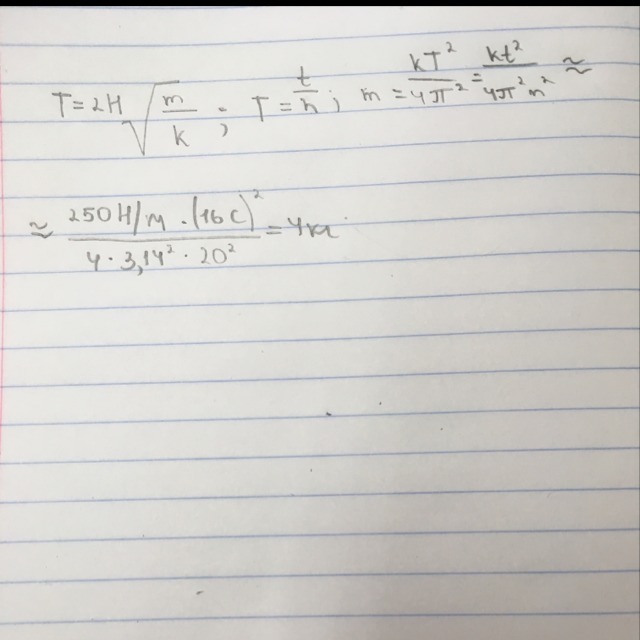 T=2H√(m/k); T=t/n; m=kT²/4π²=kt²/4π²n²≈
≈ 250H/м·(16c)²/4·3,14²·20²=4кг